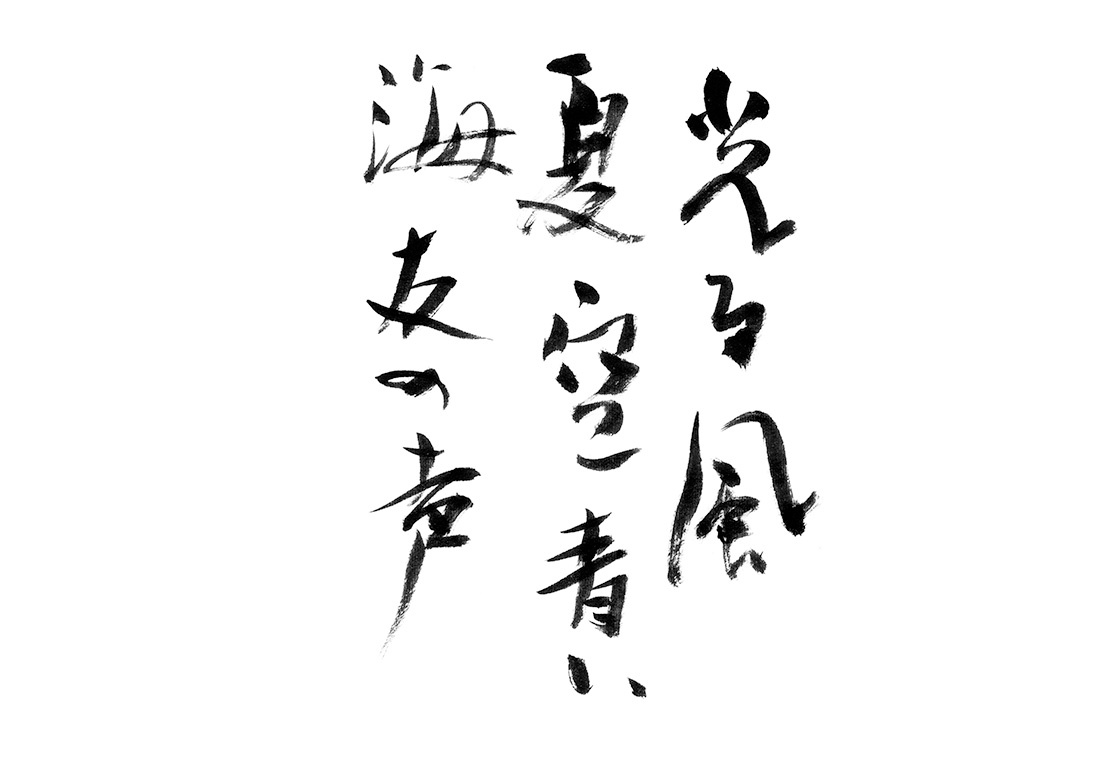 光る風
夏空青い
海友の声